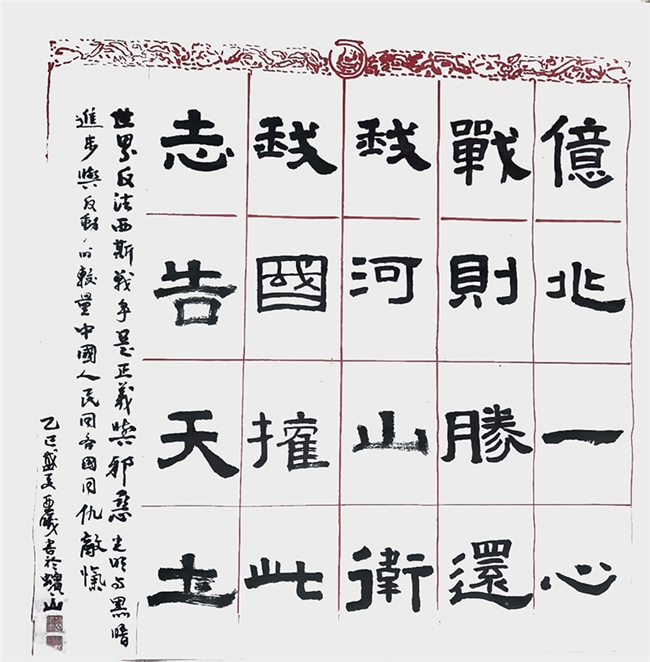 億兆一心
戰則勝還
我河山衛
我國權此
志告天土
世界反法西斯戰爭是正義與邪惡光明与黑暗
進步與反動的較量中國人民同各國同仇敵愾
乙巳盛夏書於山